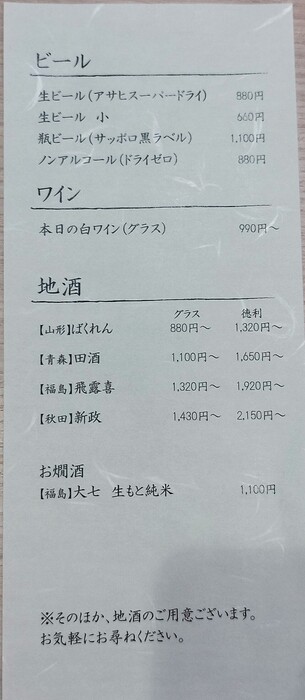 ビール
生ビール(アサヒスーパードライ) 880円
生ビール 小 660円
瓶ビール(サッポロ黒ラベル) 1,100円
ノンアルコール(ドライゼロ) 880円
ワイン
本日の白ワイン(グラス) 990円〜
地酒
グラス 徳利
【山形】ばくれん 880円〜 1,320円〜
【青森】田酒 1,100円〜 1,650円〜
【福島】飛露喜 1,320円〜 1,920円〜
【秋田】新政 1,430円〜 2,150円〜
お燗酒
【福島】大七 生もと純米 1,100円
※そのほか、地酒のご用意ございます。
お気軽にお尋ねください。